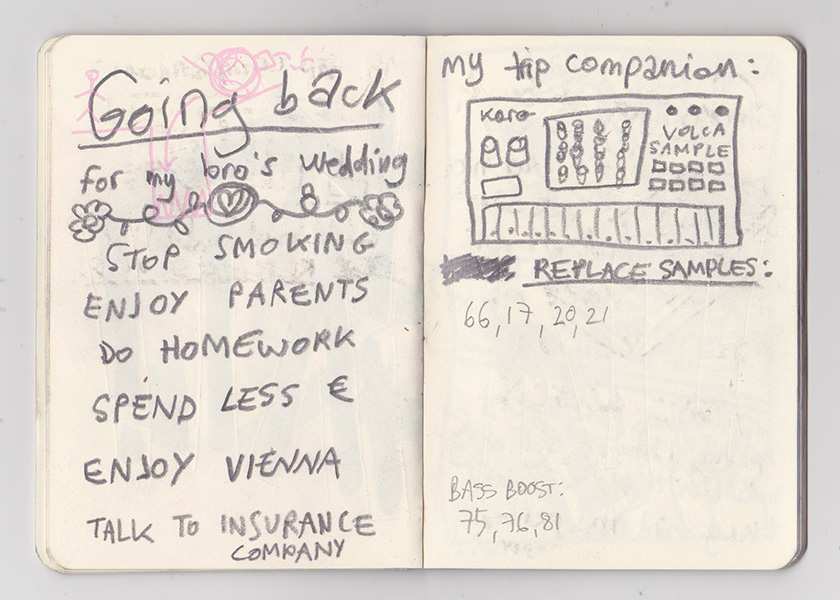 Going back
for my bro's wedding
STOP SMOKING
ENJOY PARENTS
DO HOMEWORK
SPEND LESS €
ENJOY VIENNA
TALK TO INSURANCE
COMPANY
my trip companion:
KORG
VOLCA
SAMPLE
REPLACE SAMPLES:
66, 17, 20, 21
BASS BOOST:
75, 76, 81